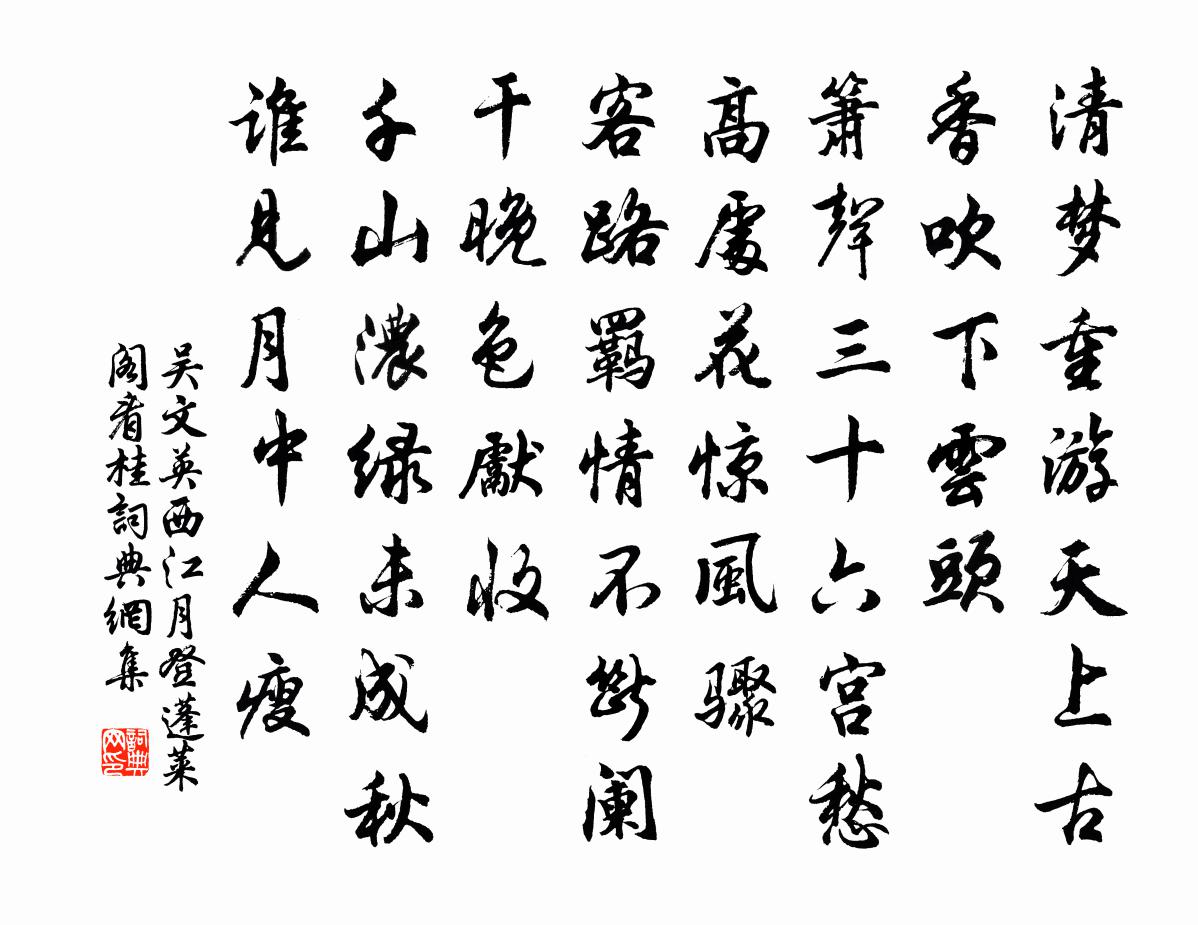 清梦重游天上古
香吹下雲頭
簫聲三十六宫愁
高處花惊風骤
客路羁情不斷阑
干晚色獻收
千山濃绿未成秋
谁见月中人瘦
吴文英西江月登蓬莱
阁看桂詞典網集
詞典网印